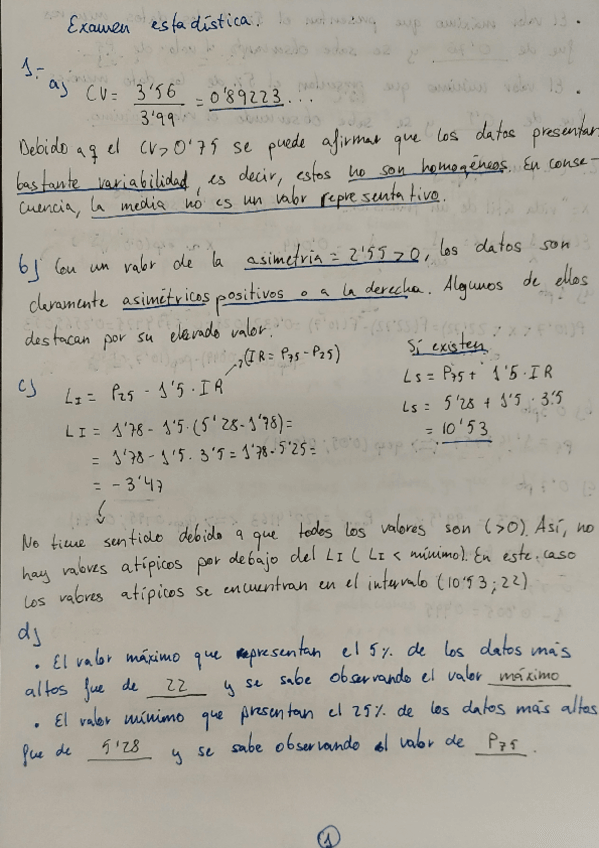 Examen estadística.
1.-
a) CV = 3'56 / 3'99 = 0'89223...
Debido a q el CV > 0'75 se puede afirmar que los datos presentan
bastante variabilidad, es decir, estos no son homogéneos. En conse-
cuencia, la media no es un valor representativo.
b) Con un valor de la asimetría = 2'55 > 0, los datos son
claramente asimétricos positivos o a la derecha. Algunos de ellos
destacan por su elevado valor.
c) LI = P25 - 1'5 · IR → (IR = P75 - P25)
LI = 1'78 - 1'5 · (5'28 - 1'78) =
= 1'78 - 1'5 · 3'5 = 1'78 - 5'25 =
= -3'47
Sí existen
Ls = P75 + 1'5 · IR
Ls = 5'28 + 1'5 · 3'5
= 10'53
No tiene sentido debido a que todos los valores son (>0). Así, no
hay valores atípicos por debajo del LI (LI < mínimo). En este caso
los valores atípicos se encuentran en el intervalo (10'53; 22)
d)
• El valor máximo que representan el 5% de los datos más
altos fue de 22 y se sabe observando el valor máximo
• El valor mínimo que presentan el 25% de los datos más altos
fue de 5'28 y se sabe observando el valor de P75.
1